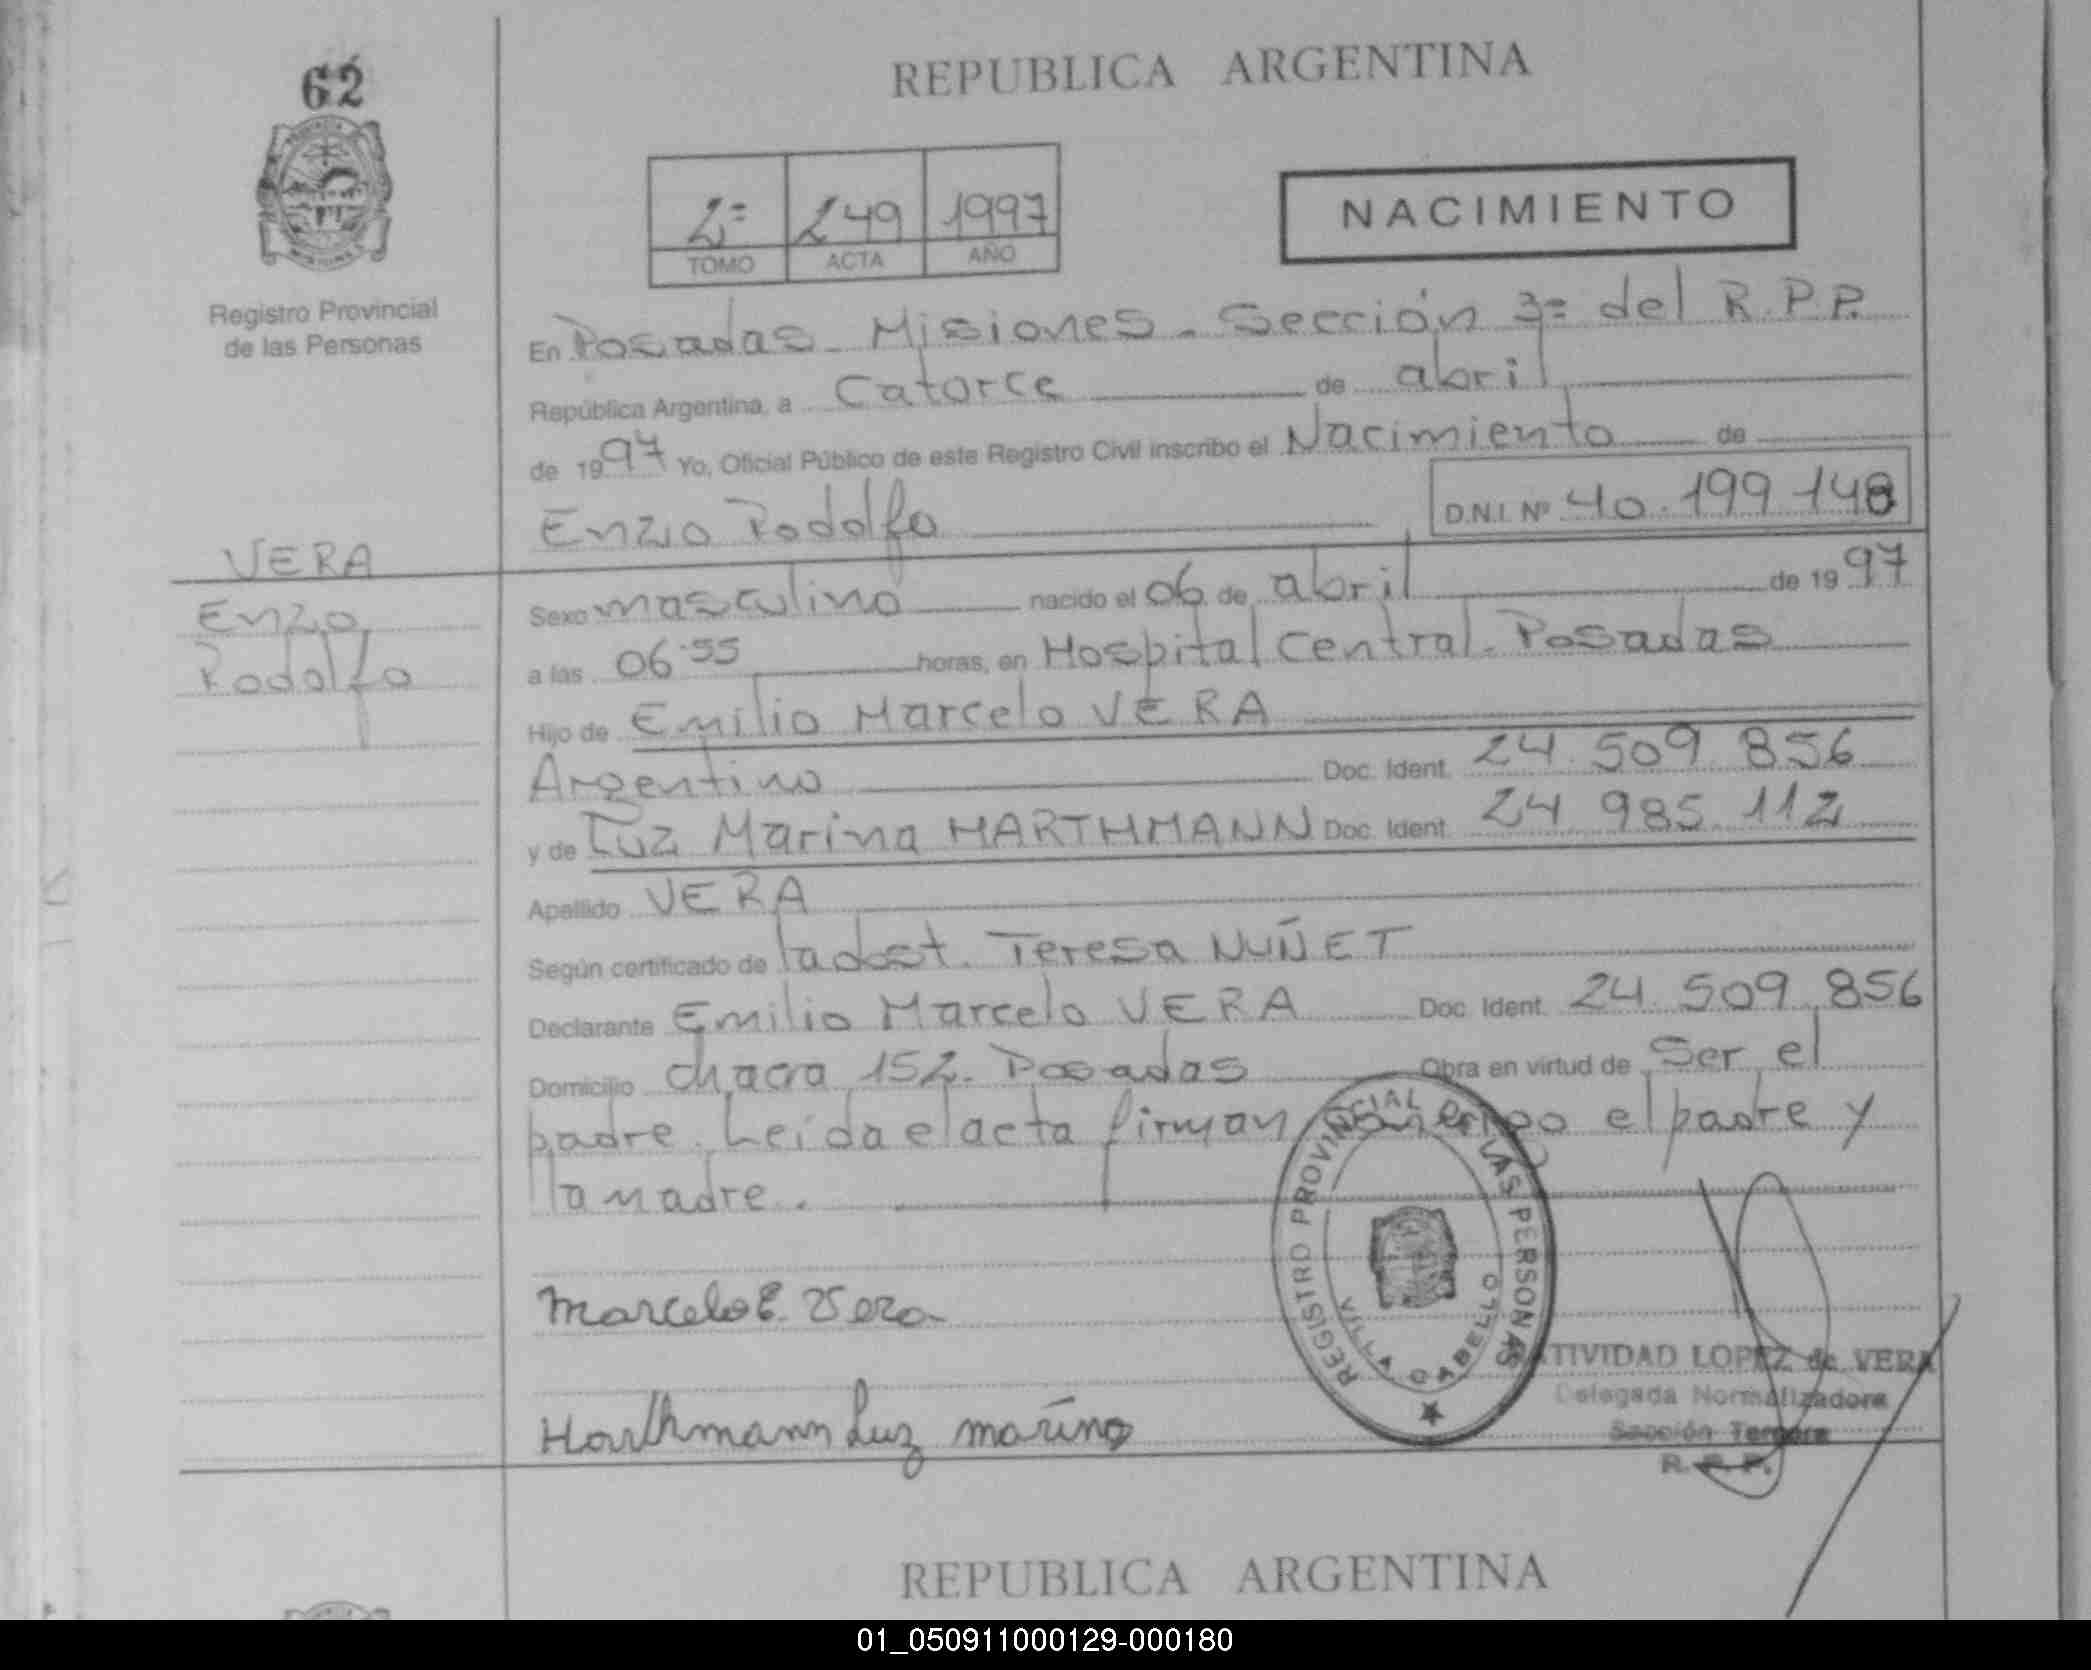 62
REPUBLICA ARGENTINA
2= 249 1997
TOMO ACTA AÑO
NACIMIENTO
Registro Provincial
de las Personas
En Posadas - Misiones - Sección 3= del R.P.P.
República Argentina, a Catorce de abril
de 1997 Yo, Oficial Público de este Registro Civil inscribo el Nacimiento de
Enzo Rodolfo D.N.I. Nº 40.199.148
VERA
Enzo
Rodolfo
Sexo masculino nacido el 06 de abril de 1997
a las 06:55 horas, en Hospital Central - Posadas
Hijo de Emilio Marcelo VERA
Argentino Doc. Ident. 24.509.856
y de Luz Marina HARTHMANN Doc. Ident. 24.985.112
Apellido VERA
Según certificado de la obst. Teresa NUÑET
Declarante Emilio Marcelo VERA Doc. Ident. 24.509.856
Domicilio chacra 152. Posadas Obra en virtud de Ser el
padre. Leída el acta firman conmigo el padre y
la madre.
Marcelo E. Vera
Harthmann Luz marina
REGISTRO PROVINCIAL DE LAS PERSONAS
VILLA CABELLO
ATIVIDAD LOPEZ de VERA
Delegada Normalizadora
Sección Tercera
R. P. P.
REPUBLICA ARGENTINA
01_050911000129-000180